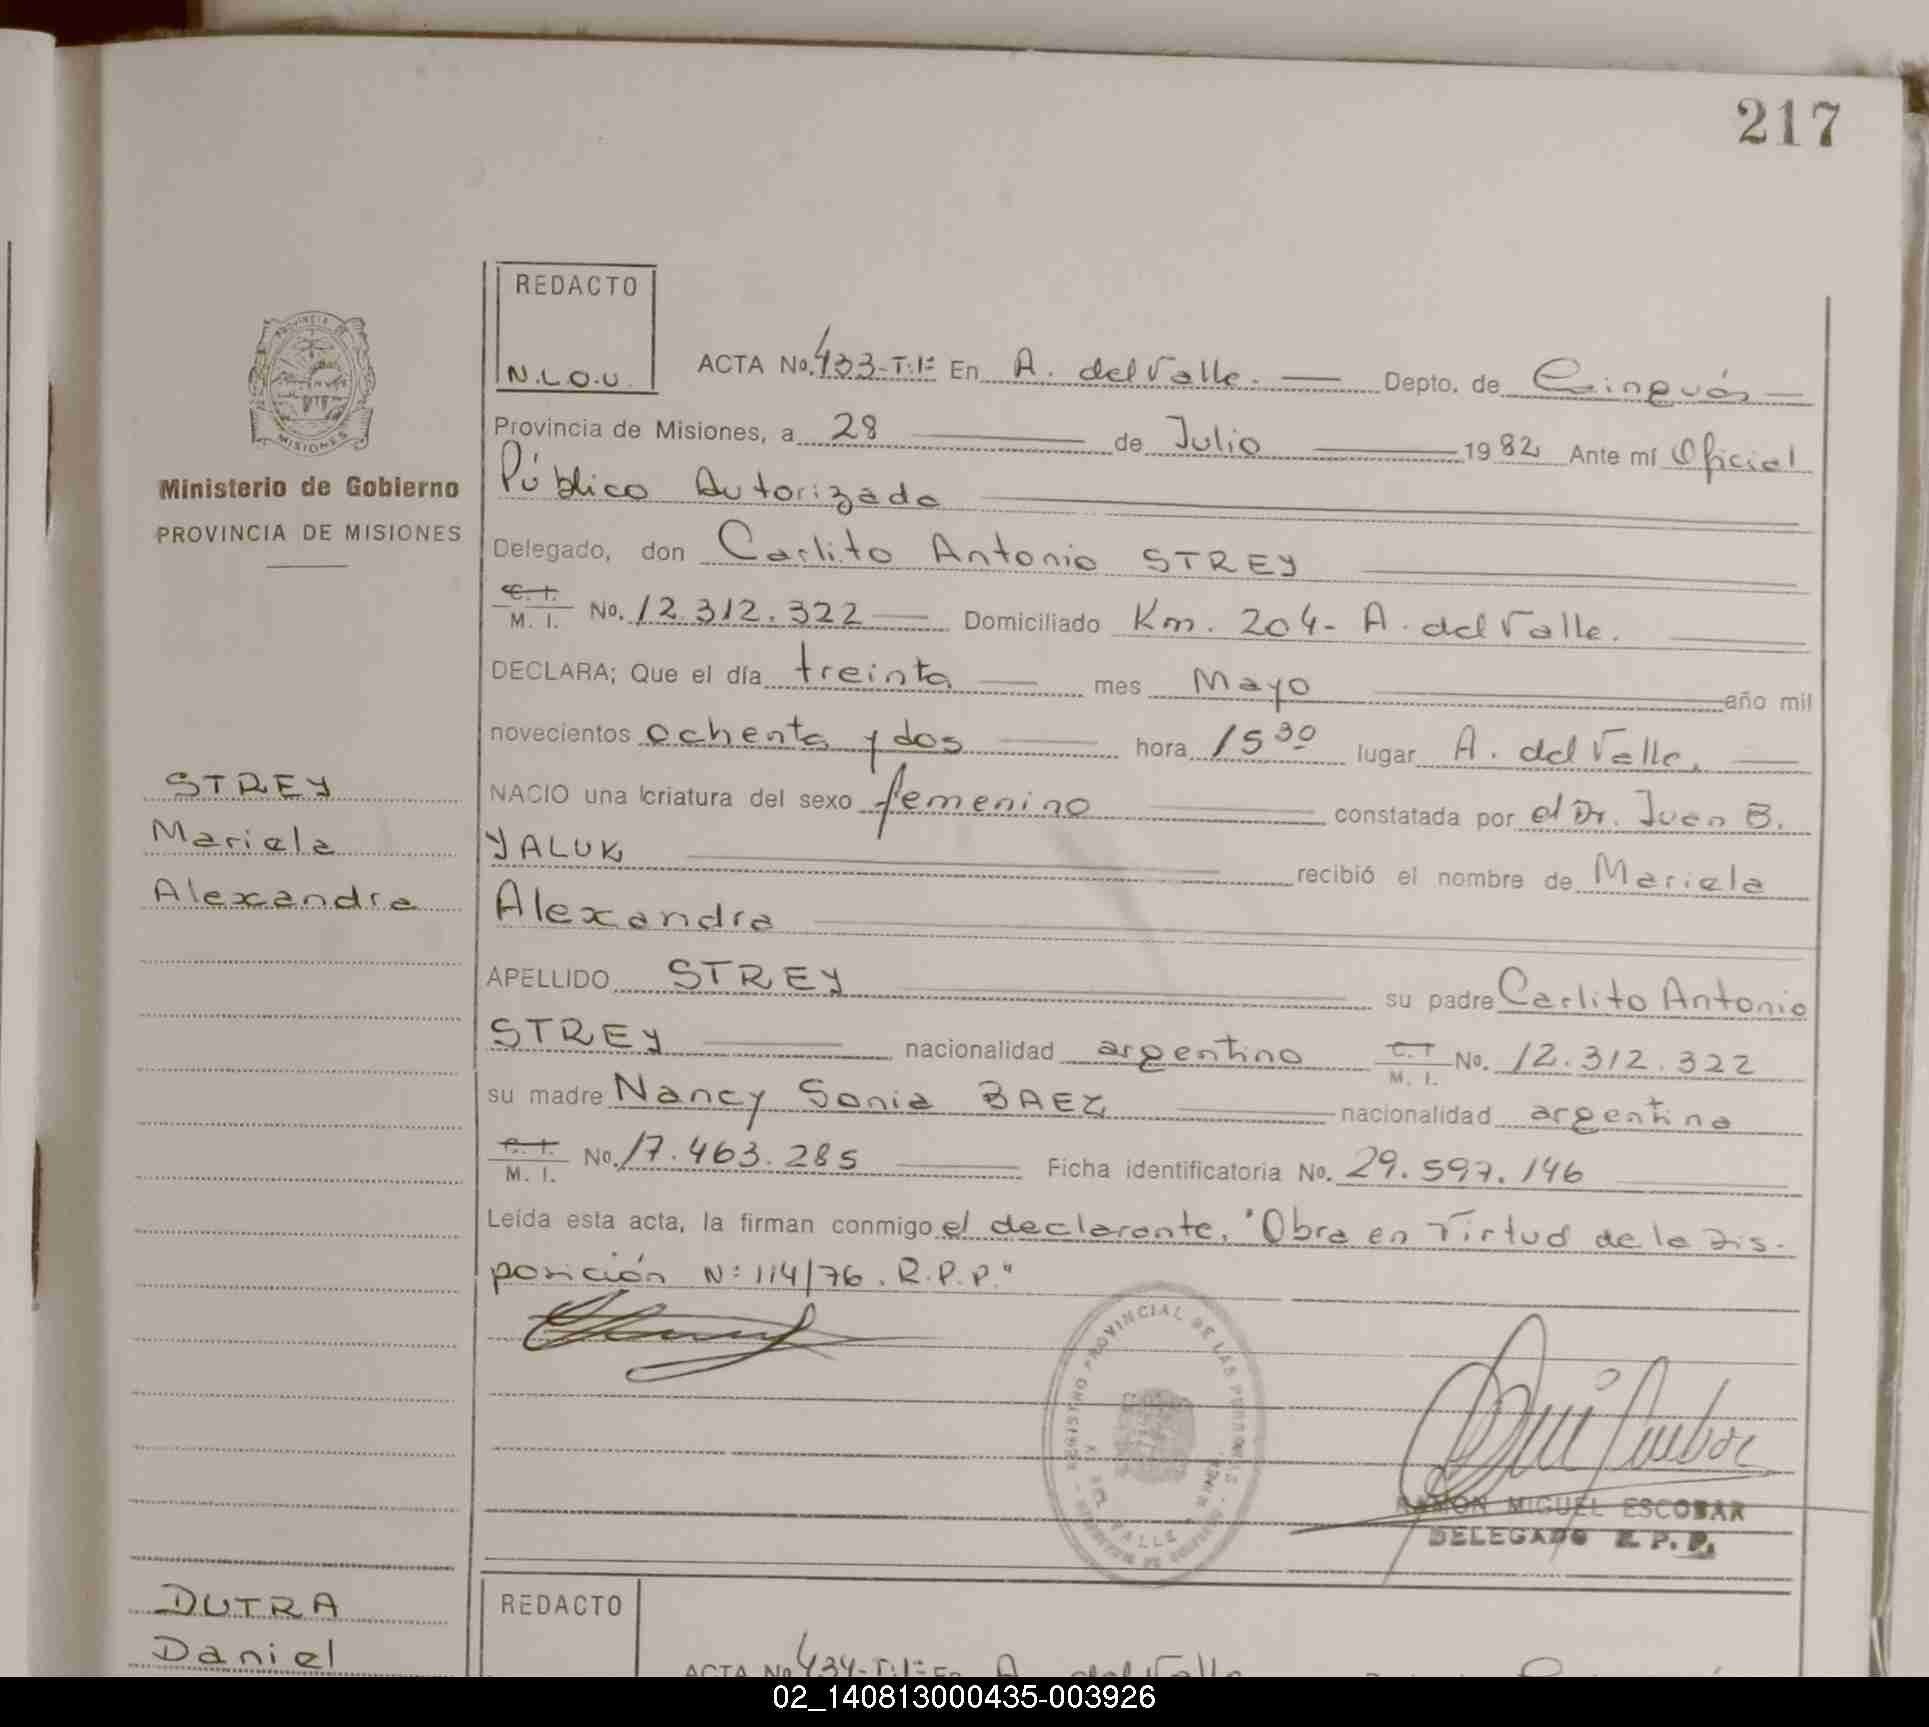 217
REDACTO
N.L.O.U.
PROVINCIA DE
MISIONES
Ministerio de Gobierno
PROVINCIA DE MISIONES
ACTA No. 433-T:1º En A. del Valle. Depto. de Cainguás
Provincia de Misiones, a 28 de Julio 1982 Ante mí Oficial
Público Autorizado
Delegado, don Carlito Antonio STREY
C. I. M. I. No. 12.312.322 Domiciliado Km. 204- A. del Valle.
DECLARA; Que el día treinta mes Mayo año mil
novecientos ochenta y dos hora 15 30 lugar A. del Valle.
NACIO una criatura del sexo femenino constatada por el Dr. Juan B.
YALUK recibió el nombre de Mariela
Alexandra
APELLIDO STREY su padre Carlito Antonio
STREY nacionalidad argentino C. I. M. I. No. 12.312.322
su madre Nancy Sonia BAEZ nacionalidad argentina
C. I. M. I. No. 17.463.285 Ficha identificatoria No. 29.597.146
Leída esta acta, la firman conmigo el declarante. "Obra en Virtud de la Dis-
posición Nº 114/76. R.P.P."
STREY
Mariela
Alexandra
REGISTRO PROVINCIAL DE LAS PERSONAS
DEL VALLE
RAMON MIGUEL ESCOBAR
DELEGADO R. P. P.
DUTRA
Daniel
REDACTO
ACTA No. 434-T:1º En A. del Valle
02_140813000435-003926